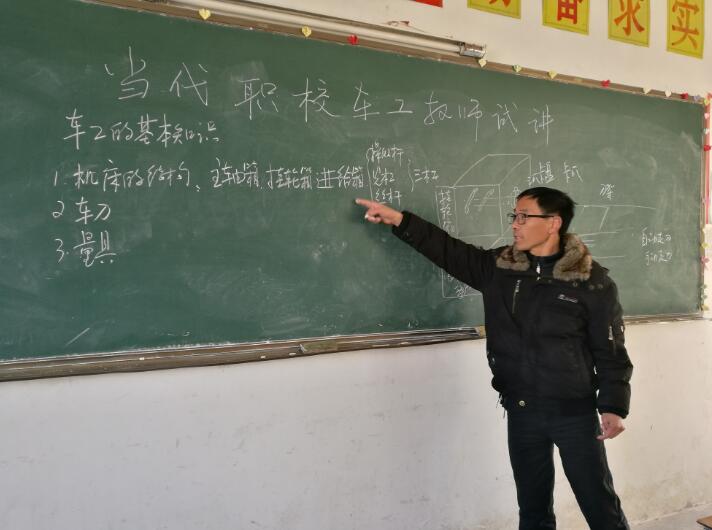 奋
求
实
当代职校车工教师试讲
车工的基本知识
1.机床的结构、主轴箱、挂轮箱、进给箱
操纵杆
光杠
丝杠
三杠
2.车刀
3.量具